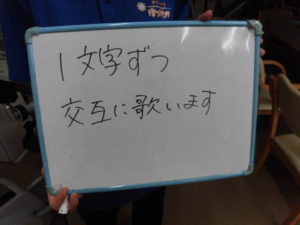 1文字ずつ
交互に歌います